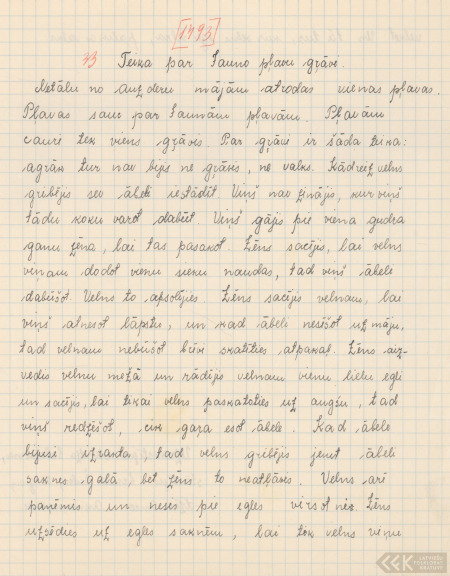 [1493]
73 Teika par Jauno pļavu grāvi.
Netālu no auzderu mājām atrodas vienas pļavas.
Pļavas sauc par Jaunām pļavām. Pļavām
cauri tek viens grāvis. Par grāvi ir šāda teika:
agrāk tur nav bijis ne grāvis, ne valks. Kādreiz velns
gribējis sev ābeli iestādīt. Viņš nav zinājis, kur viņš
tādu koku varot dabūt. Viņš gājis pie viena gudra
ganu zēna, lai tas pasakot. Zēns sacījis, lai velns
viņam dodot vienu sieku naudas, tad viņš ābeli
dabūšot. Velns to apsolījies. Zēns sacījis velnam, lai
viņš atnesot lāpstu, un kad ābeli nesīšot uz māju,
tad velnam nebūšot brīv skatīties atpakaļ. Zēns aiz-
vedis velnu mežā un rādījis velnam vienu lielu egli
un sacījis, lai tikai velns paskatoties uz augšu, tad
viņš redzēšot, cik gaŗa esot ābele. Kad ābele
bijusi izrakta, tad velns gribējis jemt ābeli
saknes galā bet zēns to neatļāvis. Velns arī
paņēmis un nesis pie egles virsotnes. Zēns
uzsēdies uz egles saknēm, lai tek velns viņu